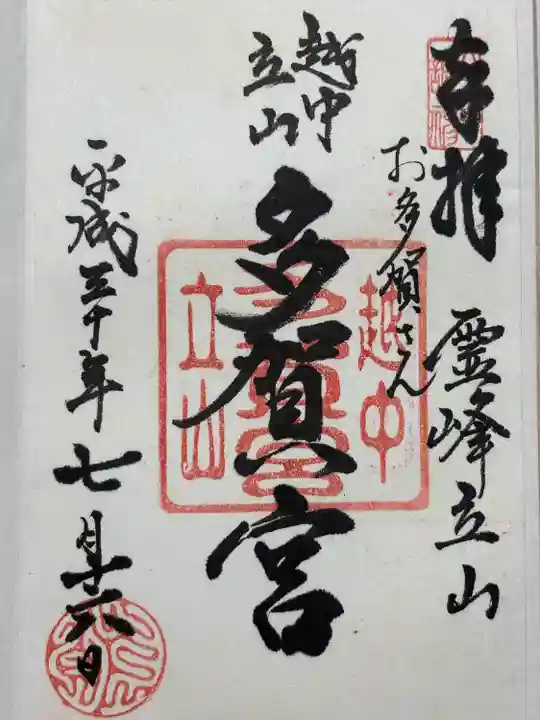 奉拝
霊峰立山
お多賀さん
越中
立山
多賀宮
平成三十年七月十六日
越中
多賀宮
立山